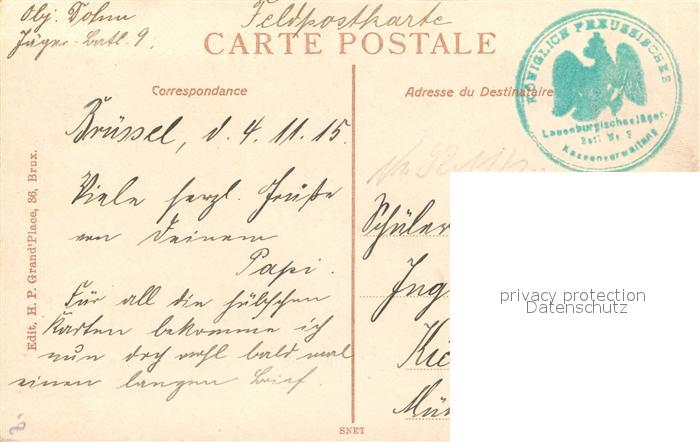 Obj. Dohm
Jäger-Batl. 9.
Feldpostkarte
CARTE POSTALE
Correspondance
Adresse du Destinataire
KÖNIGLICH PREUSSISCHES
Lauenburgisches Jäger-
Batl. Nr. 9
Kassenverwaltung
Brüssel, d. 4. 11. 15.
Viele herzl. Grüße
von Deinem
Papi.
Für all die hübschen
Karten bekomme ich
nun doch wohl bald mal
einen langen Brief.
Schüler
Ing
Kie
Mün
Edit. H. P. Grand'Place, 36, Brux.
SNET
privacy protection
Datenschutz